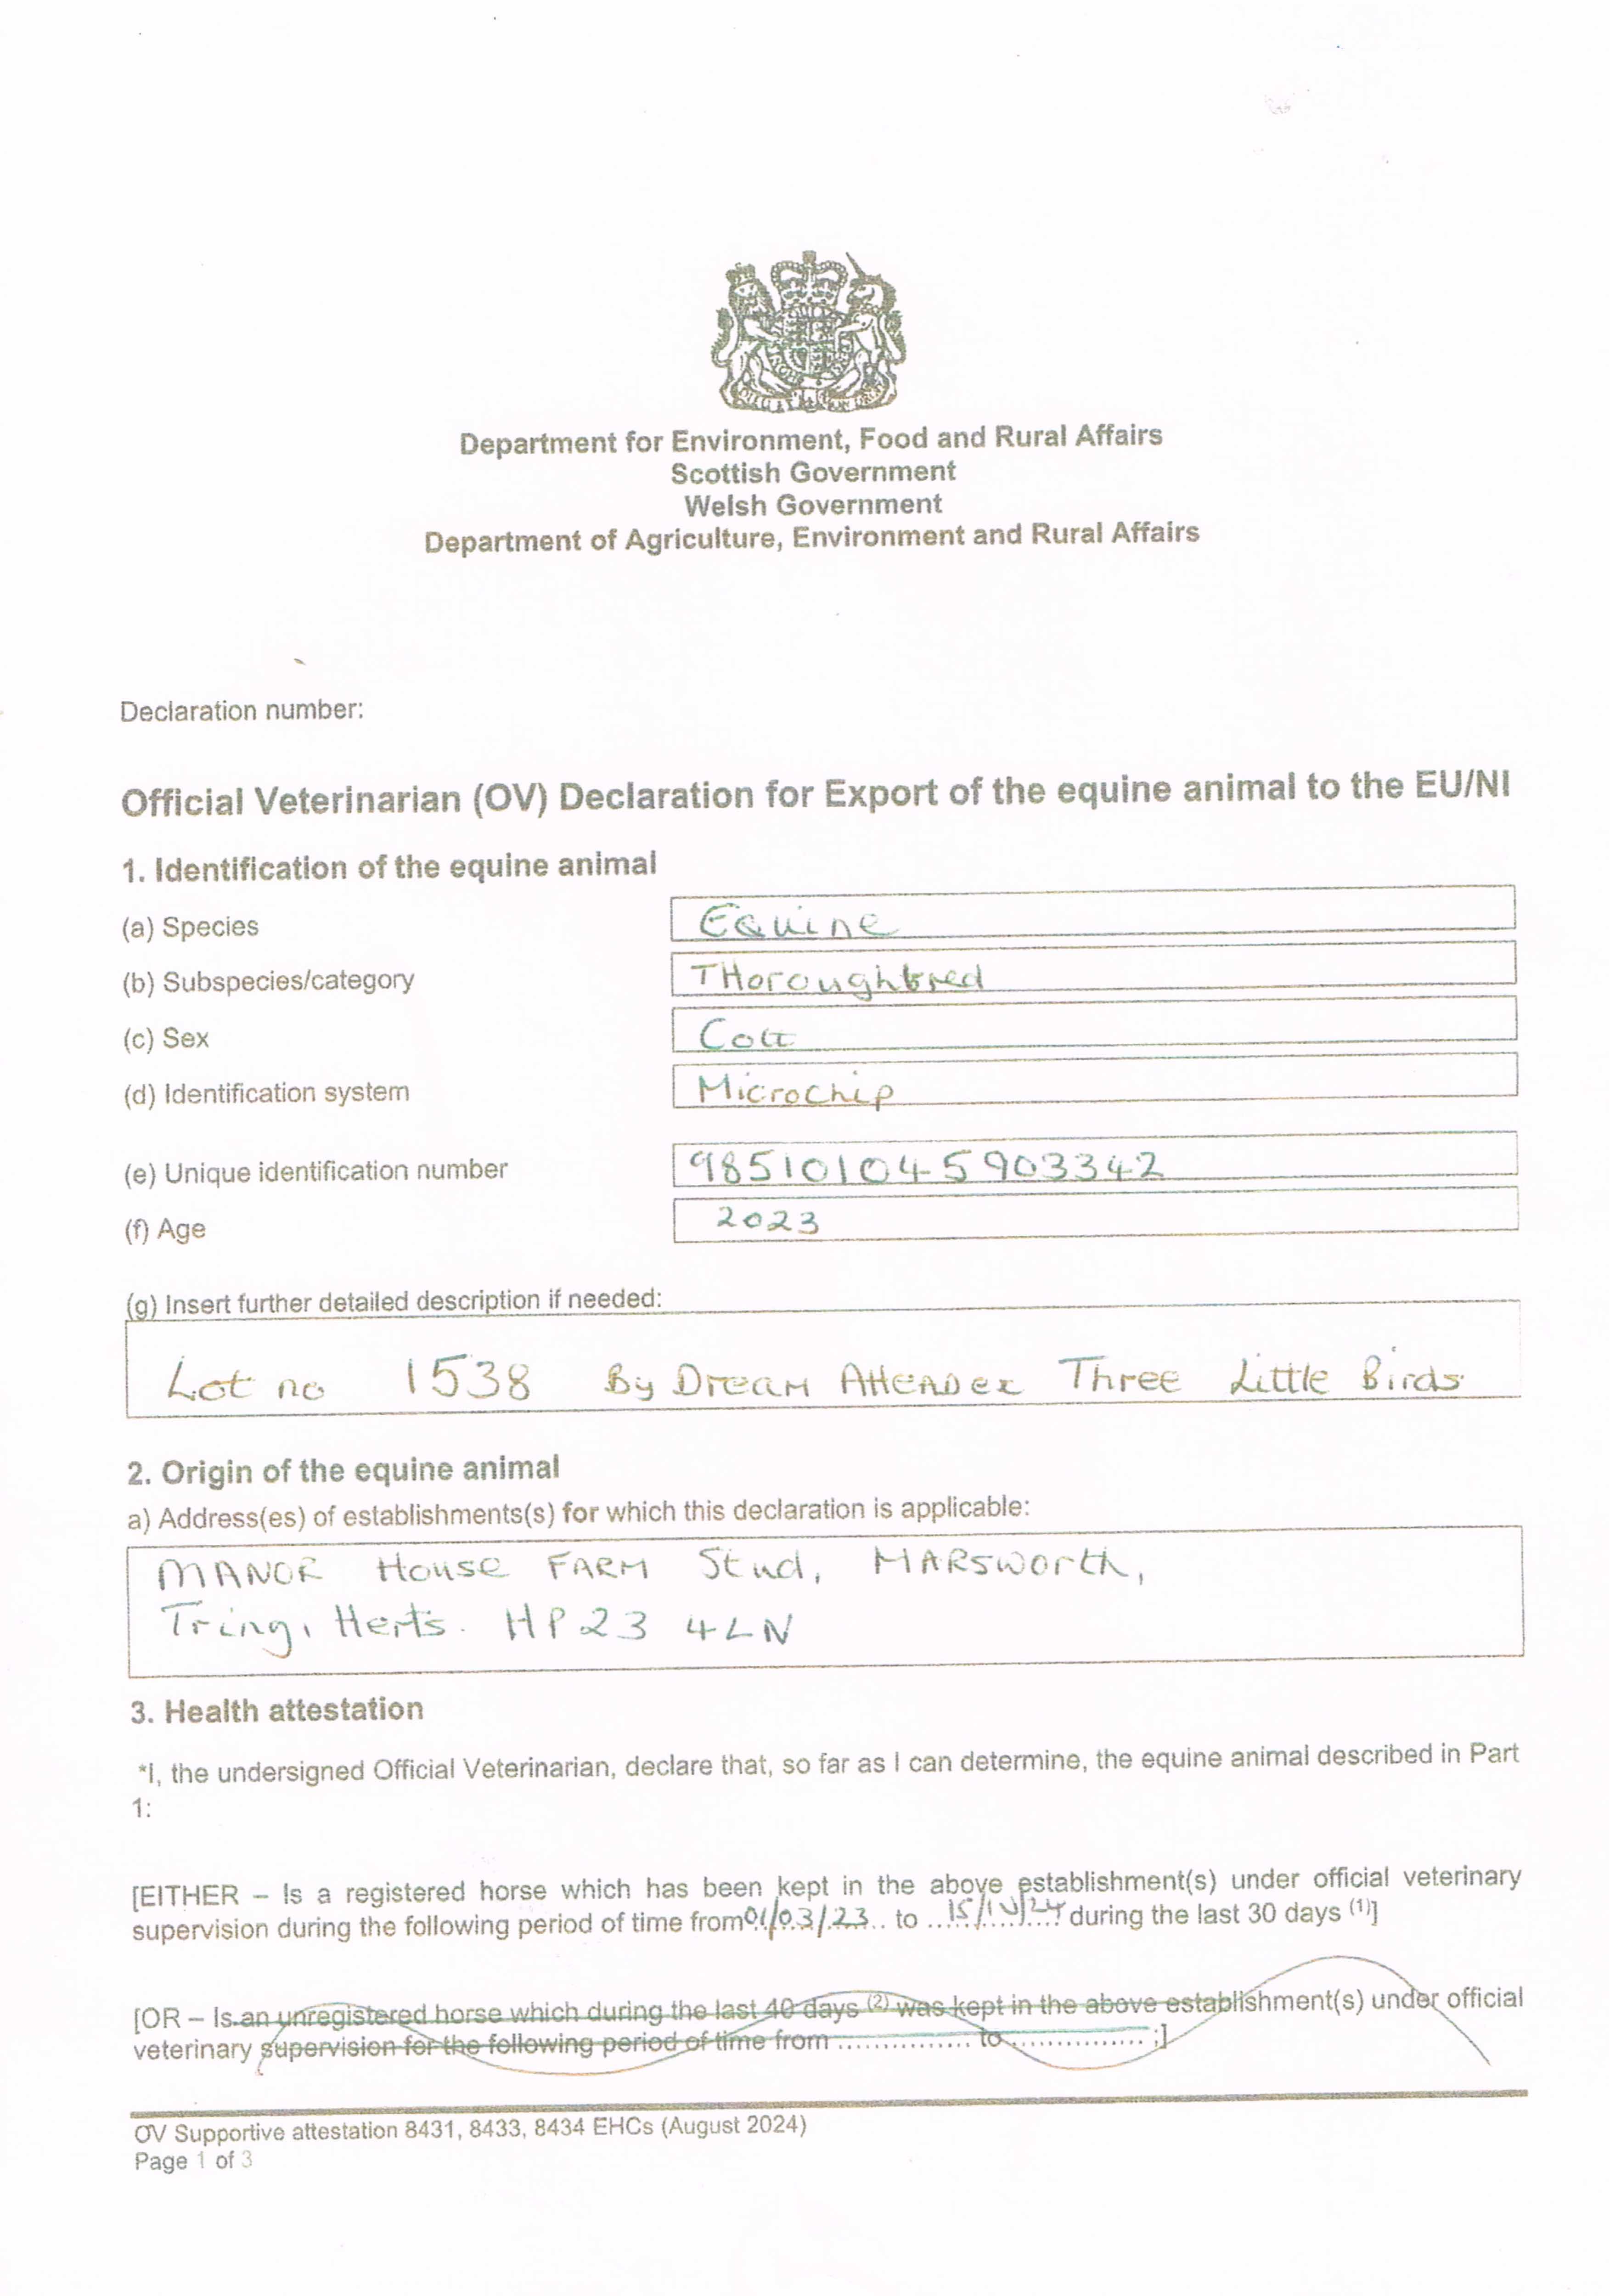 Department for Environment, Food and Rural Affairs
Scottish Government
Welsh Government
Department of Agriculture, Environment and Rural Affairs
Declaration number:
Official Veterinarian (OV) Declaration for Export of the equine animal to the EU/NI
1. Identification of the equine animal
(a) Species Equine
(b) Subspecies/category THoroughbred
(c) Sex Colt
(d) Identification system Microchip
(e) Unique identification number 985101045903342
(f) Age 2023
(g) Insert further detailed description if needed:
Lot no 1538 By Dream Attender Three Little Birds
2. Origin of the equine animal
a) Address(es) of establishments(s) for which this declaration is applicable:
MANOR House FARM Stud, MARSworth,
Tring, Herts. HP23 4LN
3. Health attestation
*I, the undersigned Official Veterinarian, declare that, so far as I can determine, the equine animal described in Part
1:
[EITHER – Is a registered horse which has been kept in the above establishment(s) under official veterinary
supervision during the following period of time from 01/03/23 to 15/10/24 during the last 30 days (1)]
[OR – Is an unregistered horse which during the last 40 days (2) was kept in the above establishment(s) under official
veterinary supervision for the following period of time from ................ to ................ ;]
OV Supportive attestation 8431, 8433, 8434 EHCs (August 2024)
Page 1 of 3